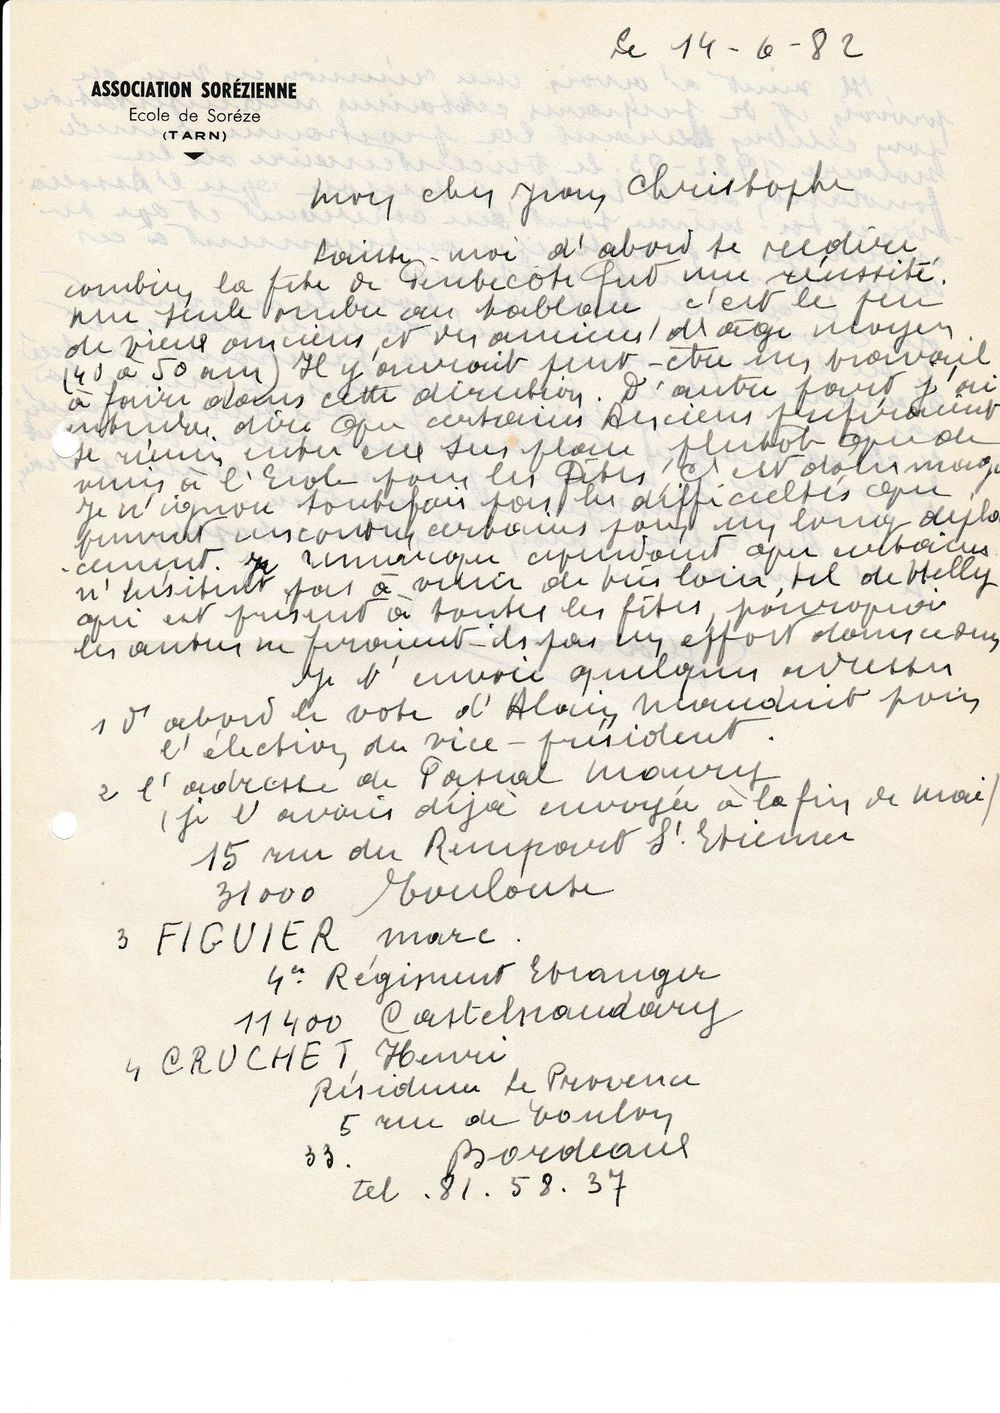 Le 14-6-82
ASSOCIATION SORÉZIENNE
Ecole de Sorèze
(TARN)
Mon cher Jean Christophe
Laisse-moi d'abord te redire
combien la fête de Pentecôte fut une réussite.
Une seule ombre au tableau c'est le peu
de vieux anciens et des anciens d'âge moyen
(40 à 50 ans) Il y aurait peut-être un travail
à faire dans cette direction. D'autre part j'ai
entendu dire que certains Anciens préféraient
se réunir entre eux sur place plutôt que de
venir à l'Ecole pour les Fêtes, c'est dommage
Je n'ignore toutefois pas les difficultés que
peuvent rencontrer certains pour un long dépla
-cement. Je remarque cependant que certains
n'hésitent pas à venir de très loin, tel de Helly
qui est présent à toutes les fêtes, pourquoi
les autres ne feraient-ils pas un effort dans ce sens
Je t'envoie quelques adresses
1 D'abord le vote d'Alain Mauduit pour
l'élection du vice-président.
2 l'adresse de Pascal Maury
(je l'avais déjà envoyée à la fin de mai)
15 rue du Rempart St. Etienne
31000 Toulouse
3 FIGUIER Marc.
4er Régiment Etranger
11400 Castelnaudary
4 CRUCHET Henri
Résidence Le Provence
5 rue de Toulon
33. Bordeaux
tel .81.58.37